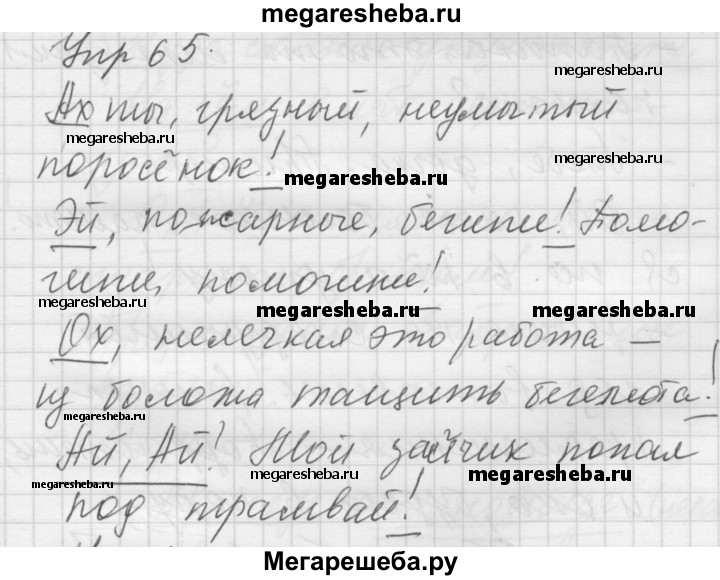 megaresheba.ru
Упр 65.
megaresheba.ru
Ах ты, грязный, неумытый
megaresheba.ru
megaresheba.ru
поросёнок!
megaresheba.ru
Эй, пожарные, бегите! Помо-
гите, помогите!
megaresheba.ru
megaresheba.ru
megaresheba.ru
Ох, нелегкая это работа –
из болота тащить бегемота!
megaresheba.ru
Ай, Ай! Мой зайчик попал
megaresheba.ru
megaresheba.ru
megaresheba.ru
под трамвай!
Мегарешеба.ру